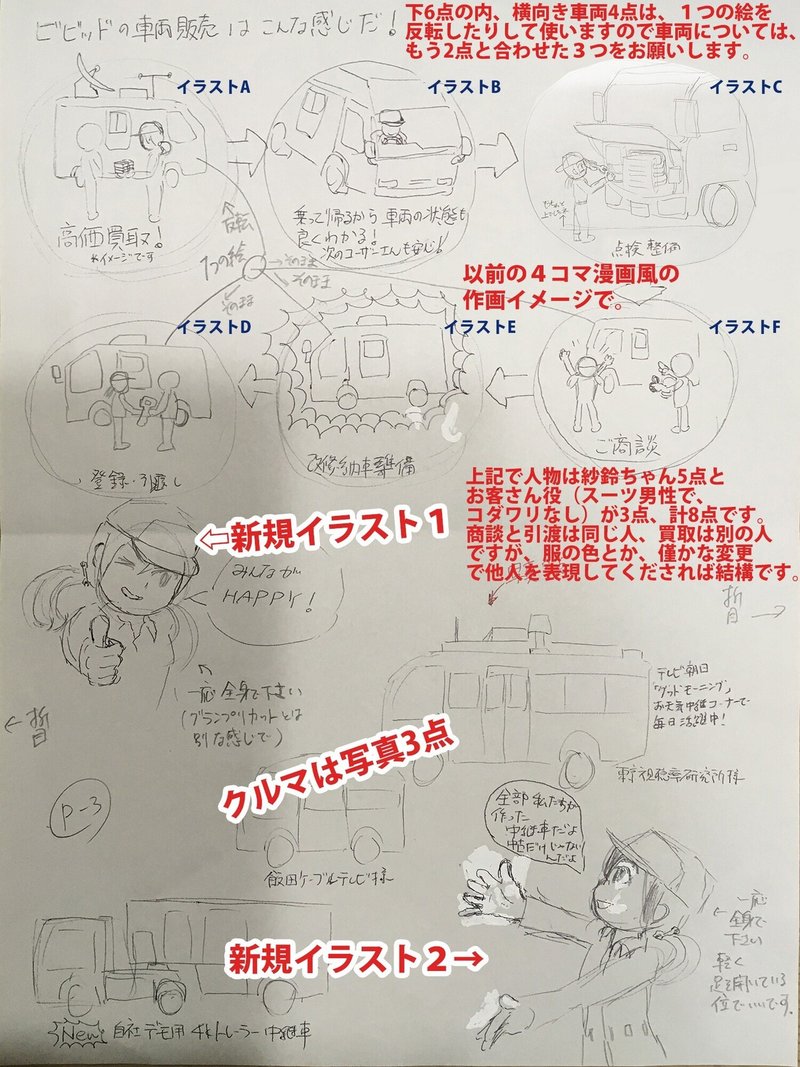 ビビッドの車両販売はこんな感じだ!
下6点の内、横向き車両4点は、１つの絵を
反転したりして使いますので車両については、
もう2点と合わせた３つをお願いします。
イラストA
イラストB
イラストC
高価買取!
※イメージです
乗って帰るから車両の状態も
良くわかる!
次のユーザーさんも安心!
点検整備
反転
1つの絵
そのまま
そのまま
そのまま
以前の４コマ漫画風の
作画イメージで。
イラストD
イラストE
イラストF
登録・引渡し
改修・納車準備
ご商談
上記で人物は紗鈴ちゃん5点と
お客さん役（スーツ男性で、
コダワリなし）が3点、計8点です。
商談と引渡は同じ人、買取は別の人
ですが、服の色とか、僅かな変更
で他人を表現してくだされば結構です。
⇦新規イラスト１
みんなが
HAPPY!
一応全身で下さい
(グランプリカットとは
別な感じで)
折目
折目
P-3
クルマは写真3点
テレビ朝日
「グッドモーニング」
お天気中継コーナーで
毎日活躍中!
飯田ケーブルテレビ様
全部私たちが
作った
中継車だよ
中古だけじゃない
んだよ
新規イラスト２→
一応
全身で
下さい
軽く
足を開いている
位でいいです。
New
自社デモ用4kトレーラー中継車